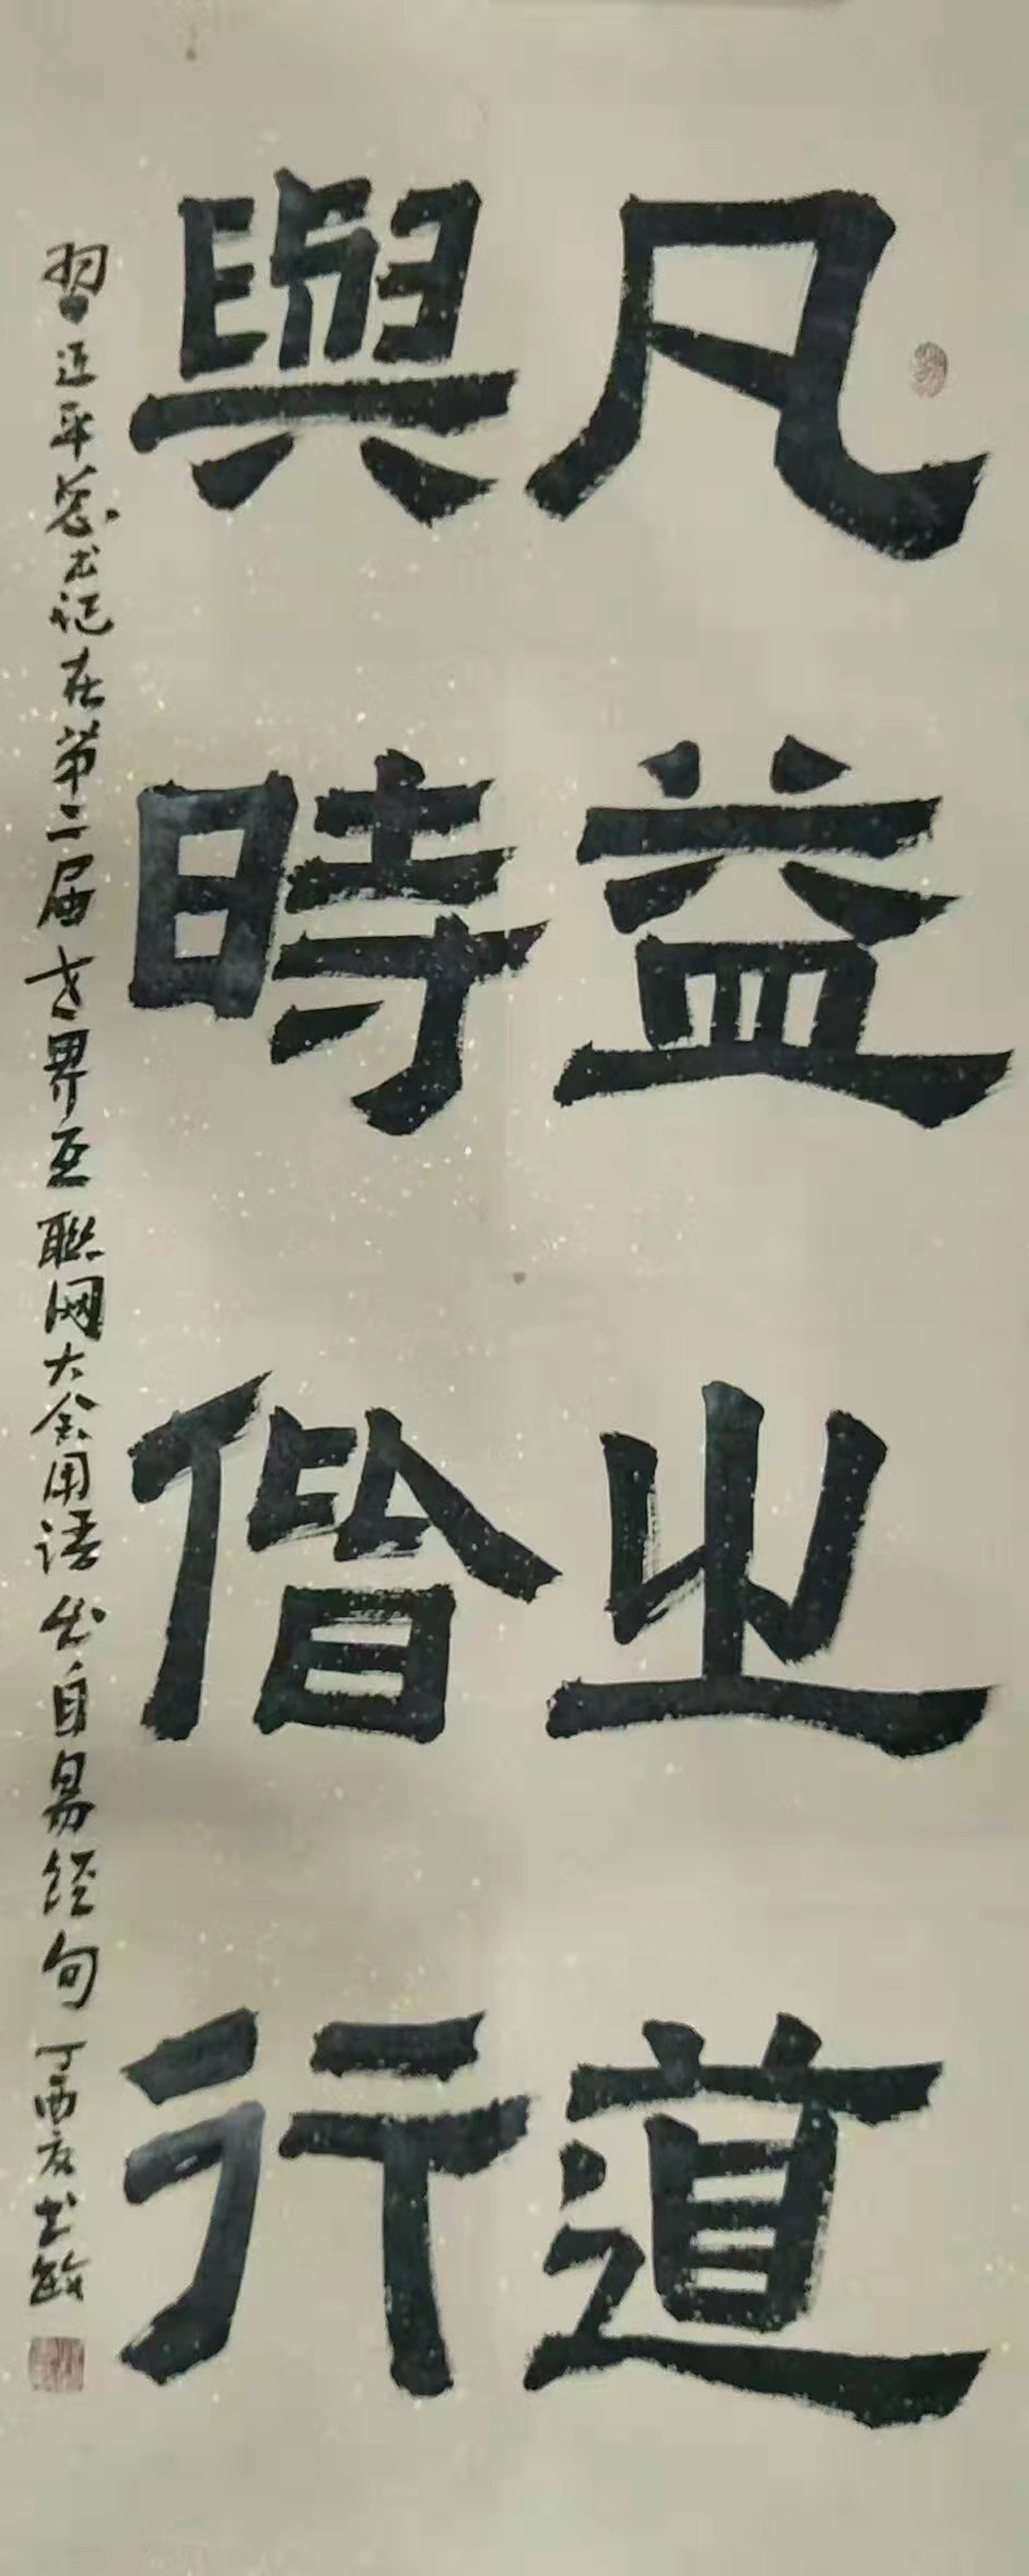 凡益之道
與時偕行
習近平总书记在第二届世界互聯网大会用语出自易经句丁酉友书敏